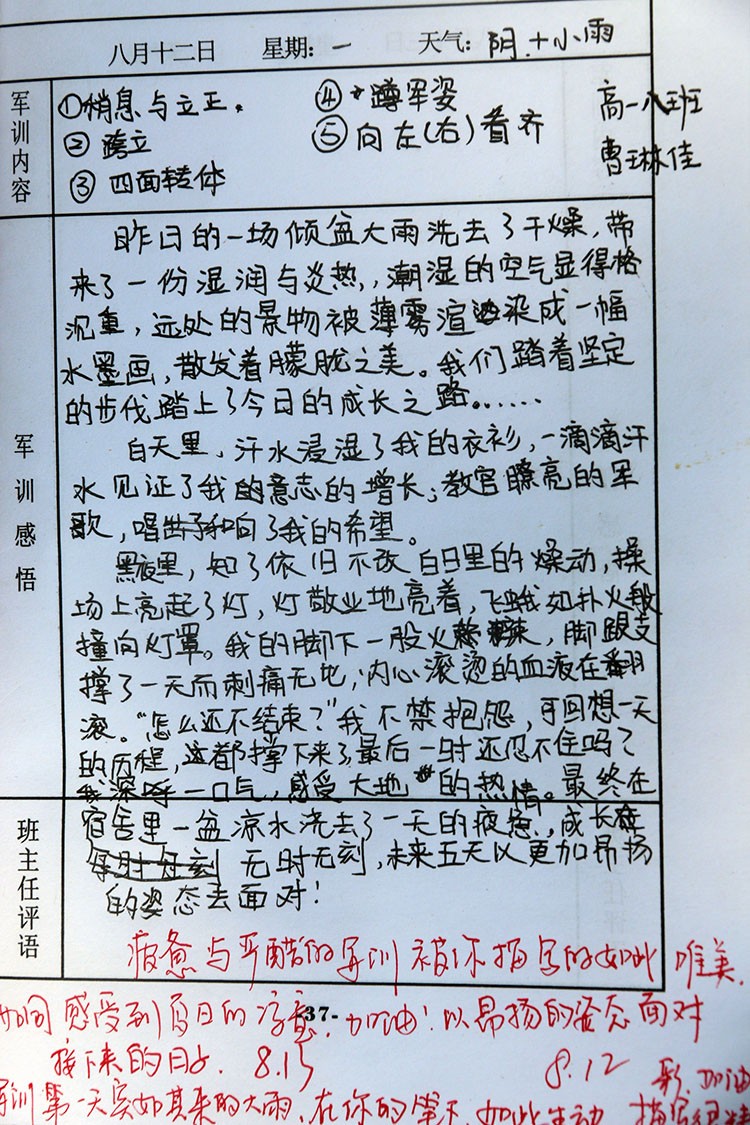 八月十二日 星期:一 天气:阴.+小雨
军训内容
①稍息与立正.
②跨立
③四面转体
④蹲军姿
⑤向左(右)看齐
高一八班
曹琳佳
军训感悟
昨日的一场倾盆大雨洗去了干燥,带
来了一份湿润与炎热,潮湿的空气显得格
沉重,远处的景物被薄雾渲染成一幅
水墨画,散发着朦胧之美。我们踏着坚定
的步伐踏上了今日的成长之路。……
白天里,汗水浸湿了我的衣衫,一滴滴汗
水见证了我的意志的增长;教官瞭亮的军
歌,唱响了我的希望。
黑夜里,知了依旧不改白日里的燥动,操
场上亮起了灯,灯敬业地亮着,飞蛾如扑火般
撞向灯罩。我的脚下一股火辣,脚跟支
撑了一天而刺痛无比,内心滚烫的血液在翻
滚。“怎么还不结束?”我不禁抱怨,可回想一天
的历程,这都撑下来了最后一时还忍不住吗?
我深呼一口气,感受大地的热情。最终在
宿舍里一盆凉水浇去了一天的疲惫,成长在
无时无刻,未来五天以更加昂扬
的姿态去面对!
班主任评语
疲惫与严酷的军训被你描写的如此唯美.
如同感受到夏日的凉意.加油!以昂扬的姿态面对
接下来的日子. 8.13
-37-
8.12
加油
军训第一天突如其来的大雨,在你的笔下,如此生动,描写很